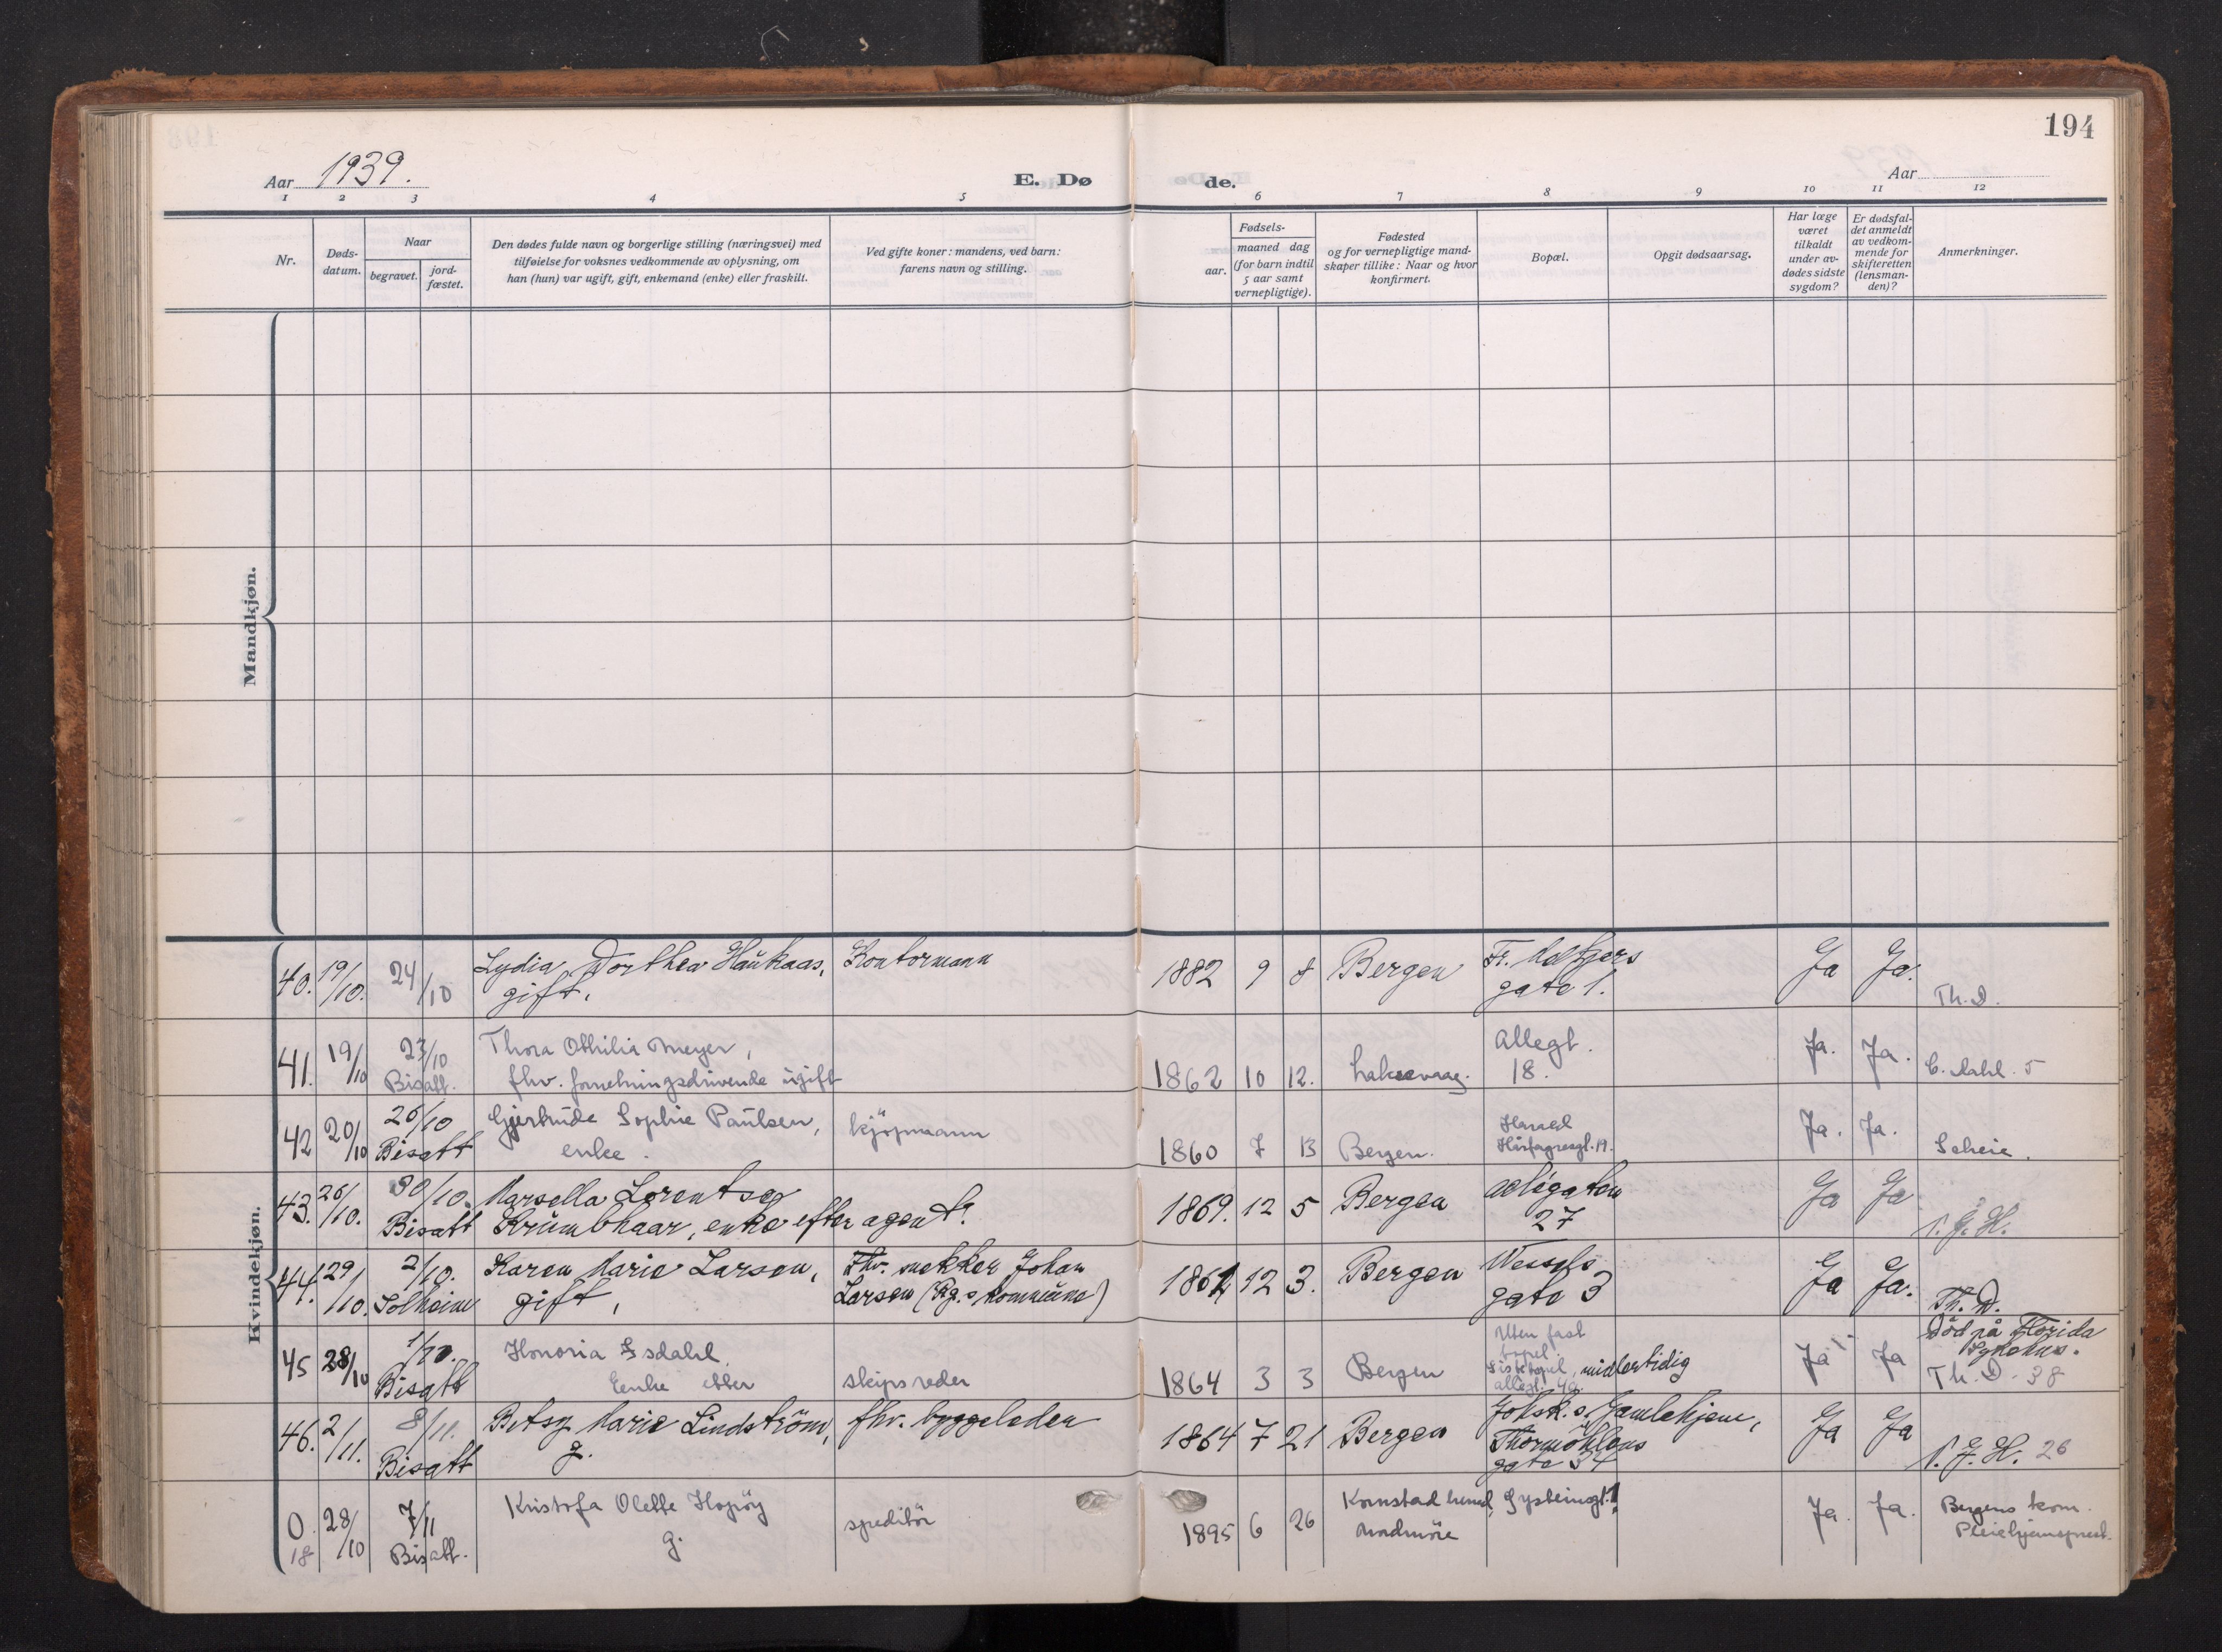 194
Aar 1939.
E. Dø
de.
Aar
1 2 3 4 5 6 7 8 9 10 11 12
Nr.
Døds-
datum.
Naar
begravet.
jord-
fæstet.
Den dødes fulde navn og borgerlige stilling (næringsvei) med
tilføielse for voksnes vedkommende av oplysning, om
han (hun) var ugift, gift, enkemand (enke) eller fraskilt.
Ved gifte koner: mandens, ved barn:
farens navn og stilling.
Fødsels-
aar.
maaned dag
(for barn indtil
5 aar samt
vernepligtige).
Fødested
og for vernepligtige mand-
skaper tillike: Naar og hvor
konfirmert.
Bopæl.
Opgit dødsaarsag.
Har læge
været
tilkaldt
under av-
dødes sidste
sygdom?
Er dødsfal-
det anmeldt
av vedkom-
mende for
skifteretten
(lensman-
den)?
Anmerkninger.
Mandkjøn.
Kvindekjøn.
40. 19/10. 24/10 Lydia Dorthea Haukaas, Kontormann 1882 9 8 Bergen Fr. Meltzers Ja Ja.
gift. gate 1. Th. D.
41. 19/10 23/10 Thora Othilia Meyer, 1862 10 12. Laksevaag. Allegt. Ja. Ja.
Bisatt. fhv. forretningsdrivende ugift 18. C. Dahl. 5
42 20/10 26/10 Gjertrude Sophie Paulsen, kjöpmann 1860 7 13 Bergen. Harald Ja. Ja.
Bisatt enke. Hårfagresgt. 19. Scheie.
43. 26/10. 30/10. Marsella Lorentse 1869. 12 5 Bergen Allégaten Ja Ja
Bisatt Krumbhaar, enke efter agent. 27
44. 29/10. 2/10. Karen Marie Larsen, Fhv. snekker Johan 12 3. Bergen Wessels Ja Ja.
Solheim gift, Larsen gate 3 Th. D.
45 28/10 1/10. Honoria Isdahl. skipsreder 1864 3 3 Bergen Uten fast Ja Ja Död på Florida
Bisatt Eenke etter bopel. midlertidig Sykehus.
Th. D. 38
46. 2/11. 8/11. Betsy Marie Lindström, fhv. byggeleder 1864 7 21 Bergen Gamlehjem, Ja Ja
Bisatt g. Thormöhlens
gate 34 26
0. 28/10 7/11 Kristofa Olette Hopöy speditör 1895 6 26 Kornstad herred, Gysteinsgt. 1 Ja. Ja. Bergens kom.
18 Bisatt. g. Nordmöre Pleiehjemsprest.